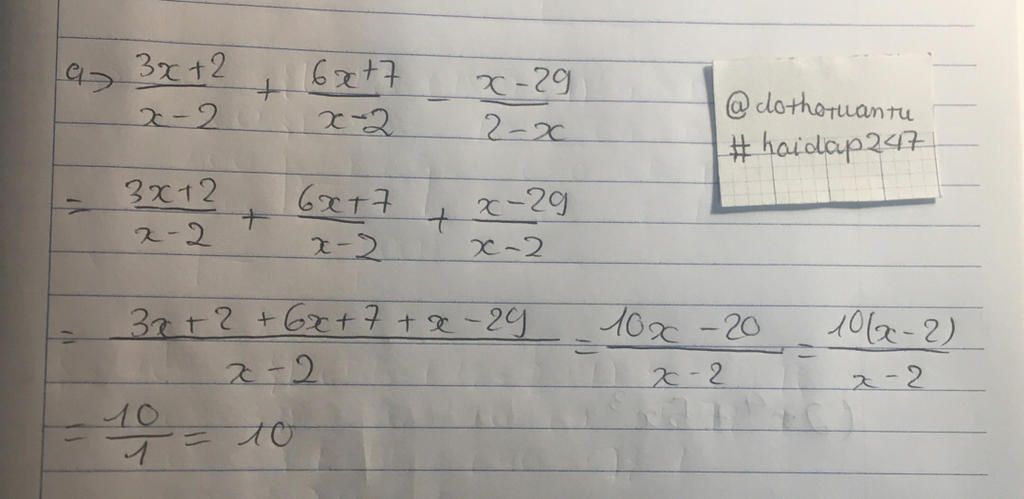 a) \frac{3x+2}{x-2} + \frac{6x+7}{x-2} - \frac{x-29}{2-x}
= \frac{3x+2}{x-2} + \frac{6x+7}{x-2} + \frac{x-29}{x-2}
= \frac{3x+2+6x+7+x-29}{x-2} = \frac{10x-20}{x-2} = \frac{10(x-2)}{x-2}
= \frac{10}{1} = 10
@dothotuantu
# hoidap247